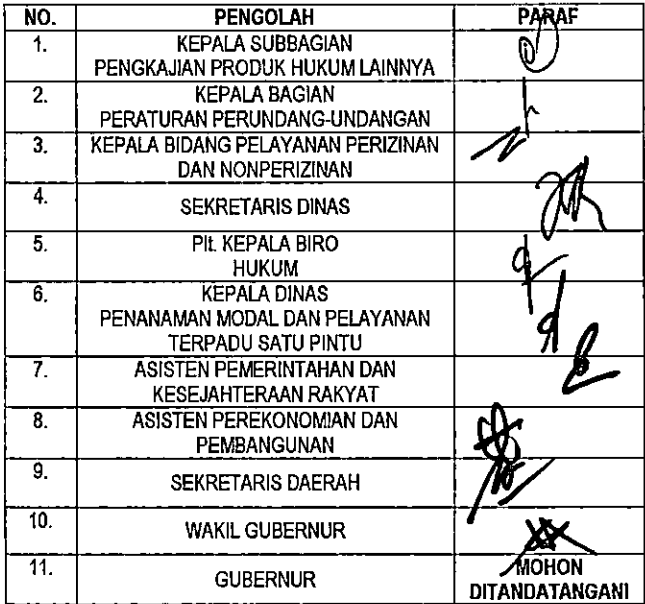 NO. PENGOLAH PARAF
1. KEPALA SUBBAGIAN
PENGKAJIAN PRODUK HUKUM LAINNYA
2. KEPALA BAGIAN
PERATURAN PERUNDANG-UNDANGAN
3. KEPALA BIDANG PELAYANAN PERIZINAN
DAN NONPERIZINAN
4. SEKRETARIS DINAS
5. Plt. KEPALA BIRO
HUKUM
6. KEPALA DINAS
PENANAMAN MODAL DAN PELAYANAN
TERPADU SATU PINTU
7. ASISTEN PEMERINTAHAN DAN
KESEJAHTERAAN RAKYAT
8. ASISTEN PEREKONOMIAN DAN
PEMBANGUNAN
9. SEKRETARIS DAERAH
10. WAKIL GUBERNUR
11. GUBERNUR MOHON
DITANDATANGANI